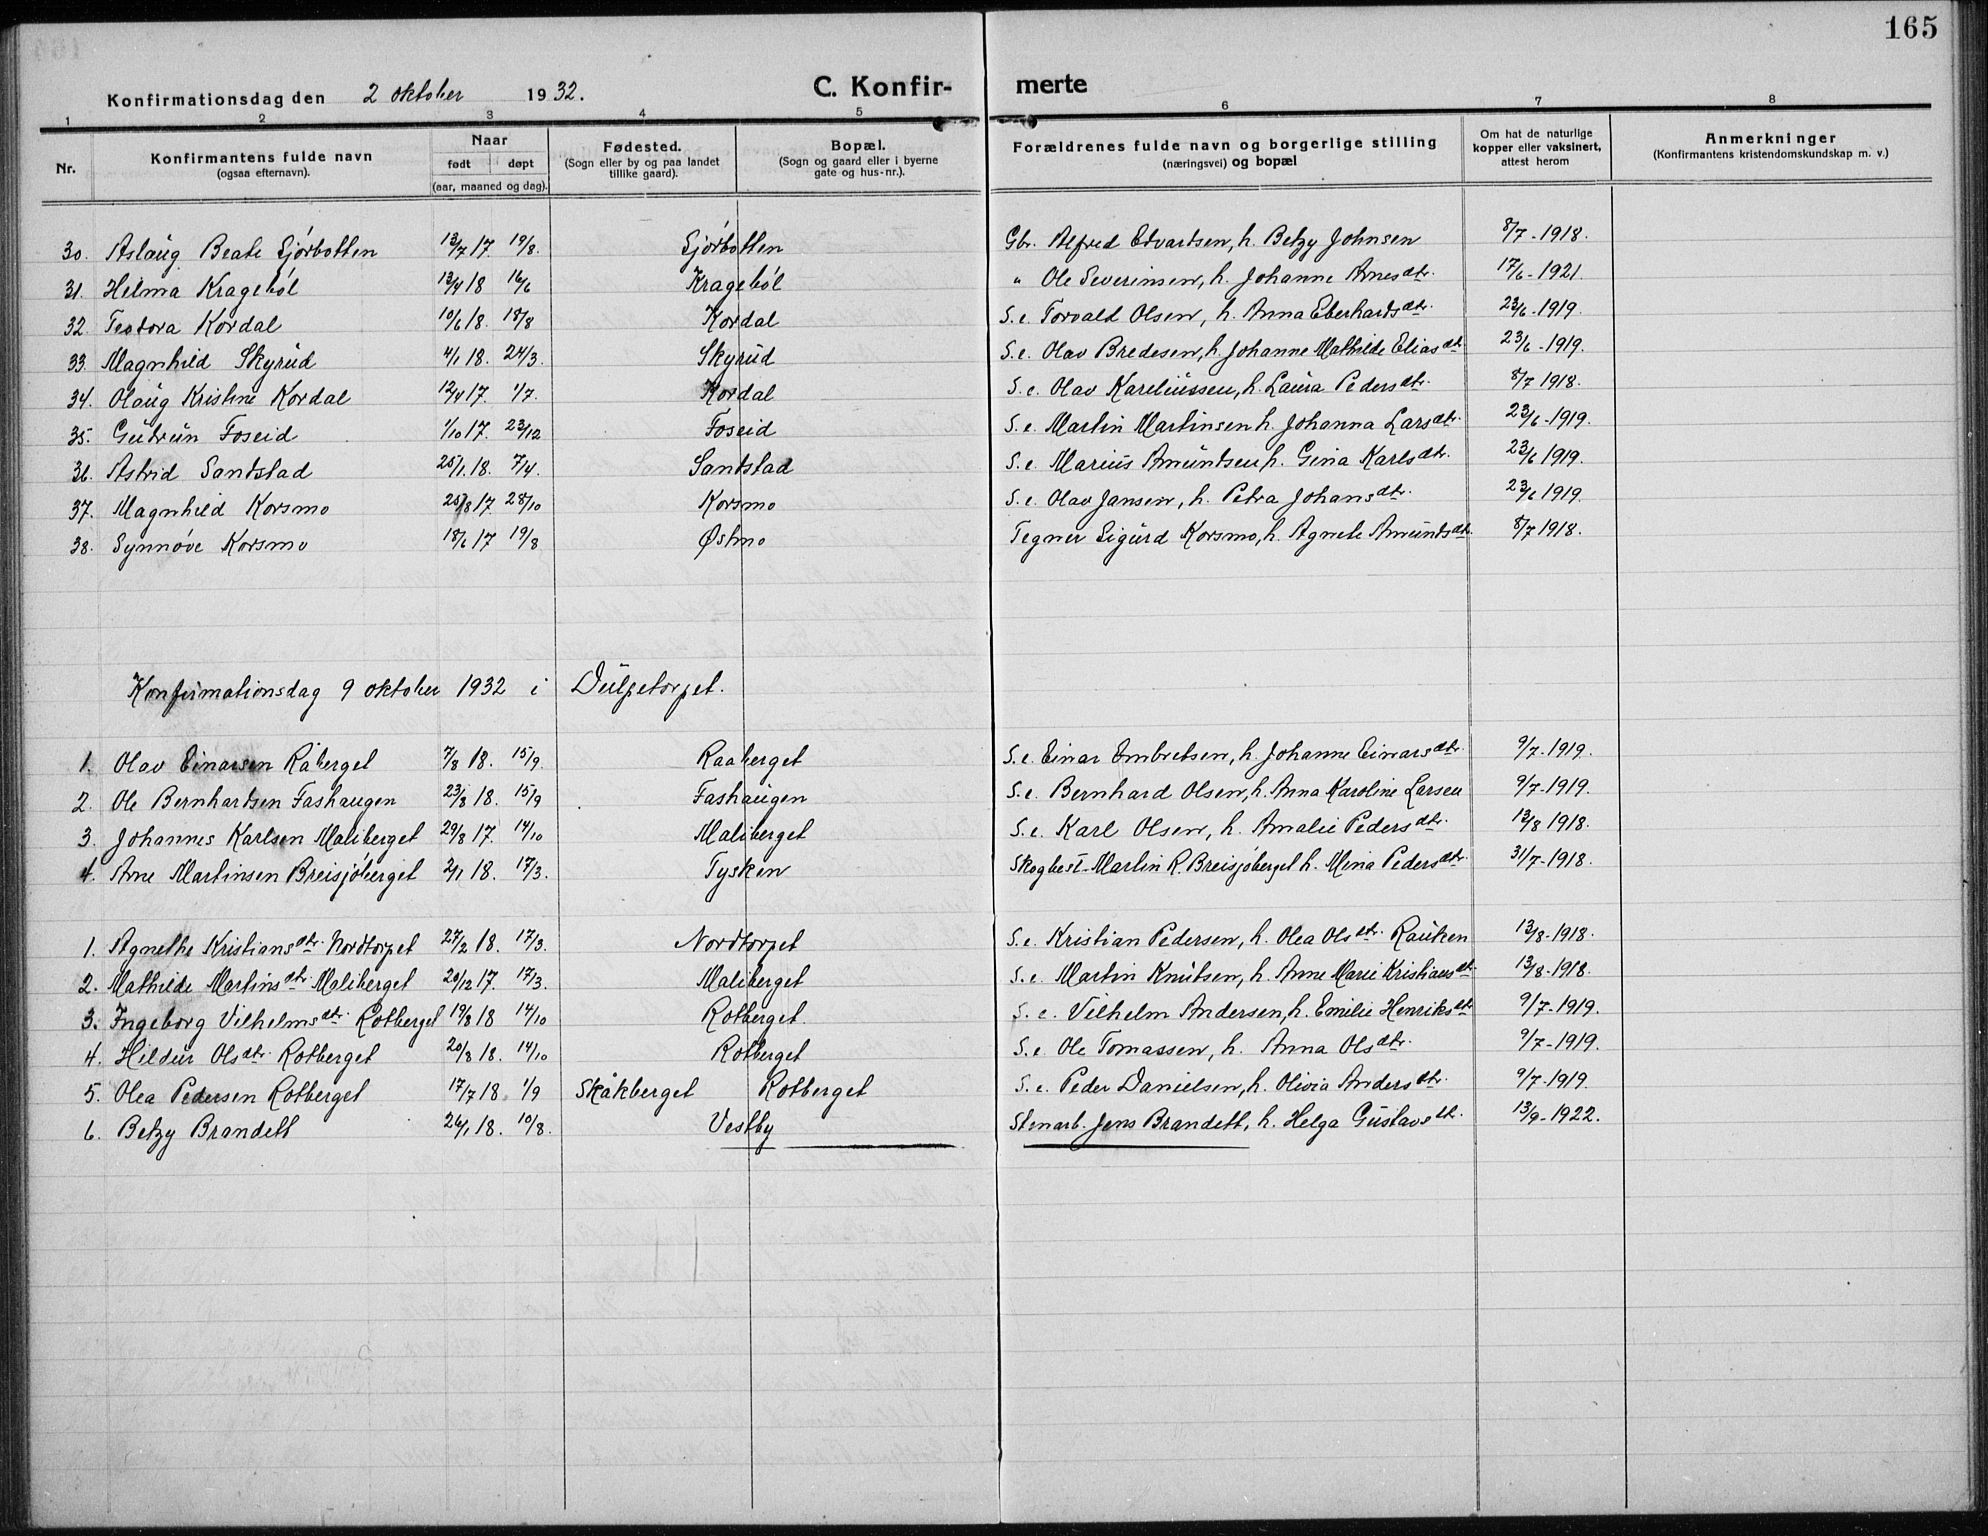 165
Konfirmationsdag den 2 oktober 1932. C. Konfir- merte
1 2 3 4 5 6 7 8
Nr. Konfirmantens fulde navn (ogsaa efternavn). Naar født døpt (aar, maaned og dag). Fødested. (Sogn eller by og paa landet tillike gaard). Bopæl. (Sogn og gaard eller i byerne gate og hus-nr.). Forældrenes fulde navn og borgerlige stilling (næringsvei) og bopæl Om hat de naturlige kopper eller vaksinert, attest herom Anmerkninger (Konfirmantens kristendomskundskap m. v.)
30. Aslaug Beate Sjörbotten 13/7 17. 19/8. Sjörbotten Gbr. Alfred Edvardsen, h. Betzy Johnsen 8/7 - 1918.
31. Helma Krageböl 13/4 18 16/6 Krageböl " Ole Severinsen, h. Johanne Arnesdtr. 17/6 - 1921.
32. Teodora Kordal 10/6 18. 18/8 Kordal S. e. Torvald Olsen, h. Anna Eberhardsdtr. 23/6 - 1919.
33. Magnhild Skyrud 4/1 18. 24/3. Skyrud S. e. Olav Bredesen, h. Johanne Mathilde Eliasdtr. 23/6 - 1919.
34. Olaug Kristine Kordal 12/4 17. 1/7. Kordal S. e. Olav Kareliussen, h. Laura Pedersdtr. 8/7 1918.
35. Gudrun Foseid 1/10 17. 23/12 Foseid S. e. Martin Martinsen h. Johanna Larsdtr. 23/6 - 1919.
36. Astrid Sandstad 25/1. 18. 7/4. Sandstad S. e. Marius Amundsen h. Gina Karlsdtr. 23/6 1919.
37. Magnhild Korsmo 25/8 17. 28/10 Korsmo S. e. Olav Jansen, h. Petra Johansdtr. 23/6 1919.
38. Synnøve Korsmo 18/6 17 19/8 Østmo Tegner Sigurd Korsmo, h. Agnete Amundsdtr. 8/7 1918.
Konfirmationsdag 9 oktober 1932 i Dulpetorpet.
1. Olav Einarsen Råberget 7/8 18. 15/9. Raaberget S. e. Einar Embretsen, h. Johanne Einarsdtr. 9/7 - 1919.
2. Ole Bernhardsen Fashaugen 23/8 18. 15/9 Fashaugen S. e. Bernhard Olsen, h. Anna Karoline Larsen 9/7 - 1919.
3. Johannes Karlsen Maliberget 29/8 17. 14/10 Maliberget S. e. Karl Olsen, h. Amalie Pedersdtr. 13/8 1918.
4. Arne Martinsen Breisjöberget 2/1 18. 17/3. Tysken Skogbest. Martin R. Breisjöberget h. Mina Pedersdtr. 31/7 - 1918.
1. Agnethe Kristiansdtr. Nordtorpet 27/2 18. 17/3. Nordtorpet S. e. Kristian Pedersen, h. Olea Olsdtr. Rauken 13/8 - 1918.
2. Mathilde Martinsdtr. Maliberget 20/12 17. 17/3. Maliberget S. e. Martin Knutsen, h. Anne Marie Kristiansdtr. 13/8 - 1918.
3. Ingeborg Vilhelmsdtr. Rotberget 19/8 18 14/10 Rotberget. S. e. Vilhelm Andersen, h. Emilie Henriksdtr. 9/7 - 1919.
4. Hildur Olsdtr. Rotberget 20/8 18. 14/10 Rotberget S. e. Ole Tomassen, h. Anna Olsdtr. 9/7 - 1919.
5. Olea Pedersen Rotberget 17/7 18 1/9 Skåkberget Rotberget S. e. Peder Danielsen, h. Olivia Andersdtr. 9/7 - 1919.
6. Betzy Brandett 26/1 18. 10/8. Vestby Stenarb. Jens Brandett, h. Helga Gustavsdtr. 13/9 - 1922.